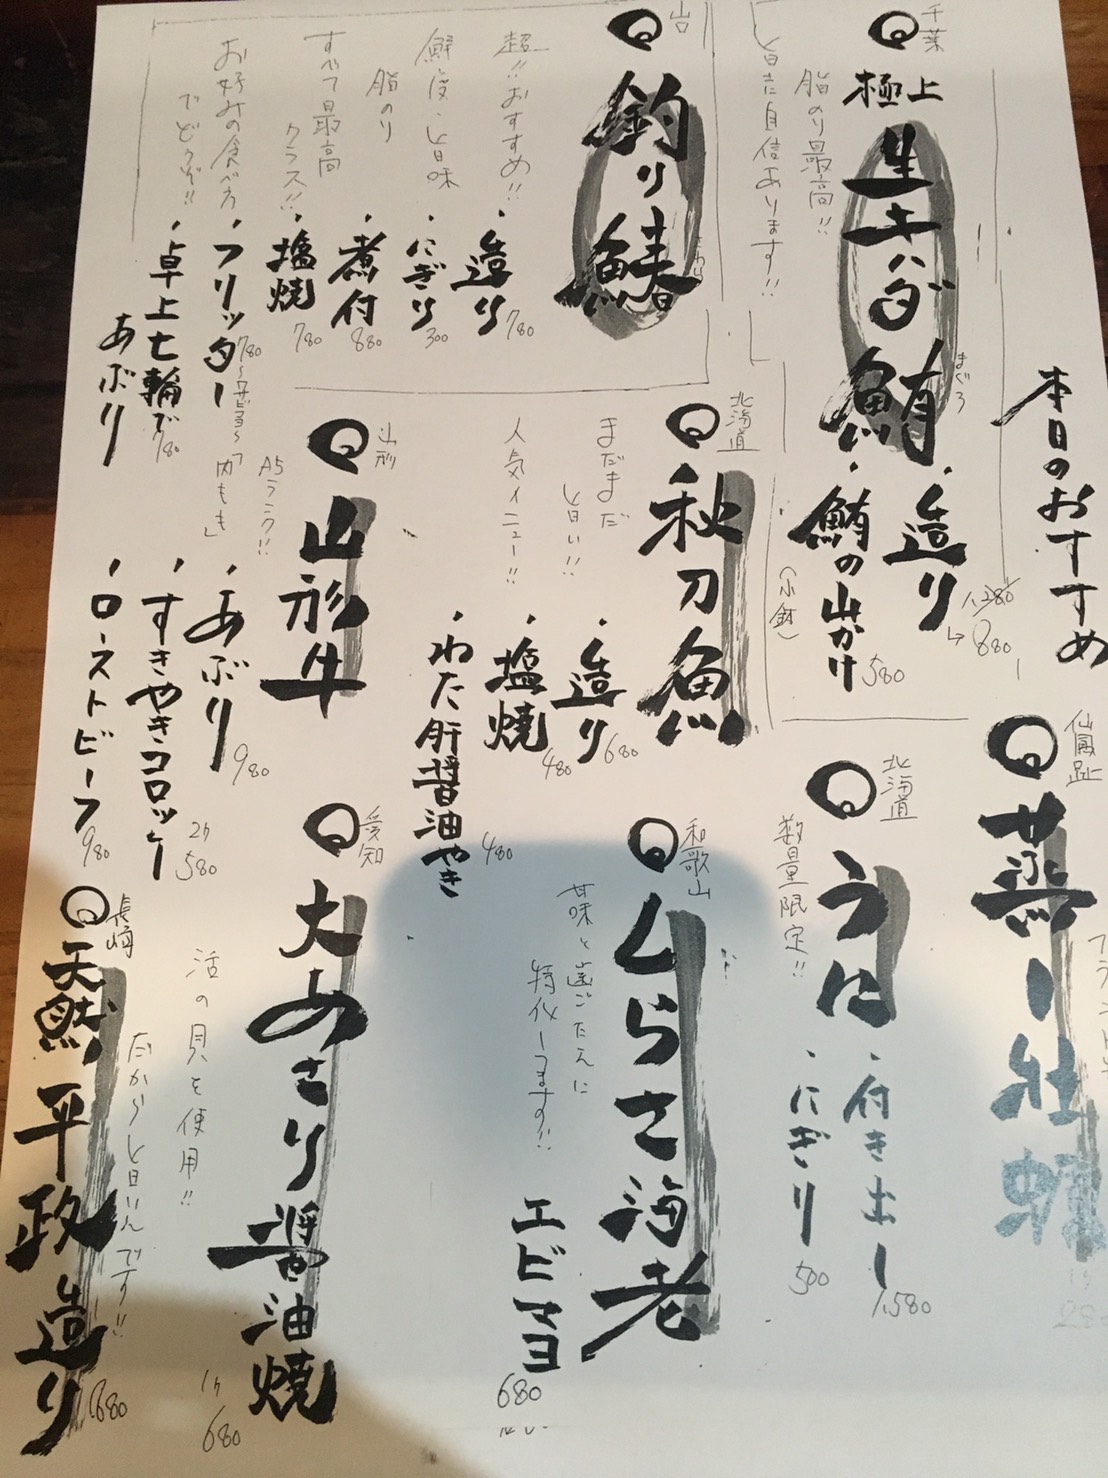 本日のおすすめ
千葉
極上
生キハダ鮪
まぐろ
脂のり最高!!
旨さに自信あります!!
・造り
1,280
→880
・鮪の山かけ
(小鉢)
580
釣り鰆
さわら
超!!おすすめ!!
鮮度、旨味
脂のり
すべて最高
クラス!!
お好みの食べ方
でどうぞ!!
・造り
780
・にぎり
300
・煮付
880
・塩焼
780
・フリッター
780
・卓上七輪で
あぶり
780
北海道
秋刀魚
まだまだ
旨い!!
人気メニュー!!
・造り
680
・塩焼
480
・わた肝醤油やき
480
山形
山形牛
A5ランク!!
「内もも」
・あぶり
980
・すきやきコロッケ
2ケ
580
・ローストビーフ
980
蒸し牡蠣
280
北海道
うに
数量限定!!
・付き出し
1,580
・にぎり
500
和歌山
しらさ海老
甘味と歯ごたえに
特化してます!!
エビマヨ
680
愛知
大あさり醤油焼
活の貝を使用!!
1ケ
680
長崎
天然平政造り
だから旨いんです!!
680